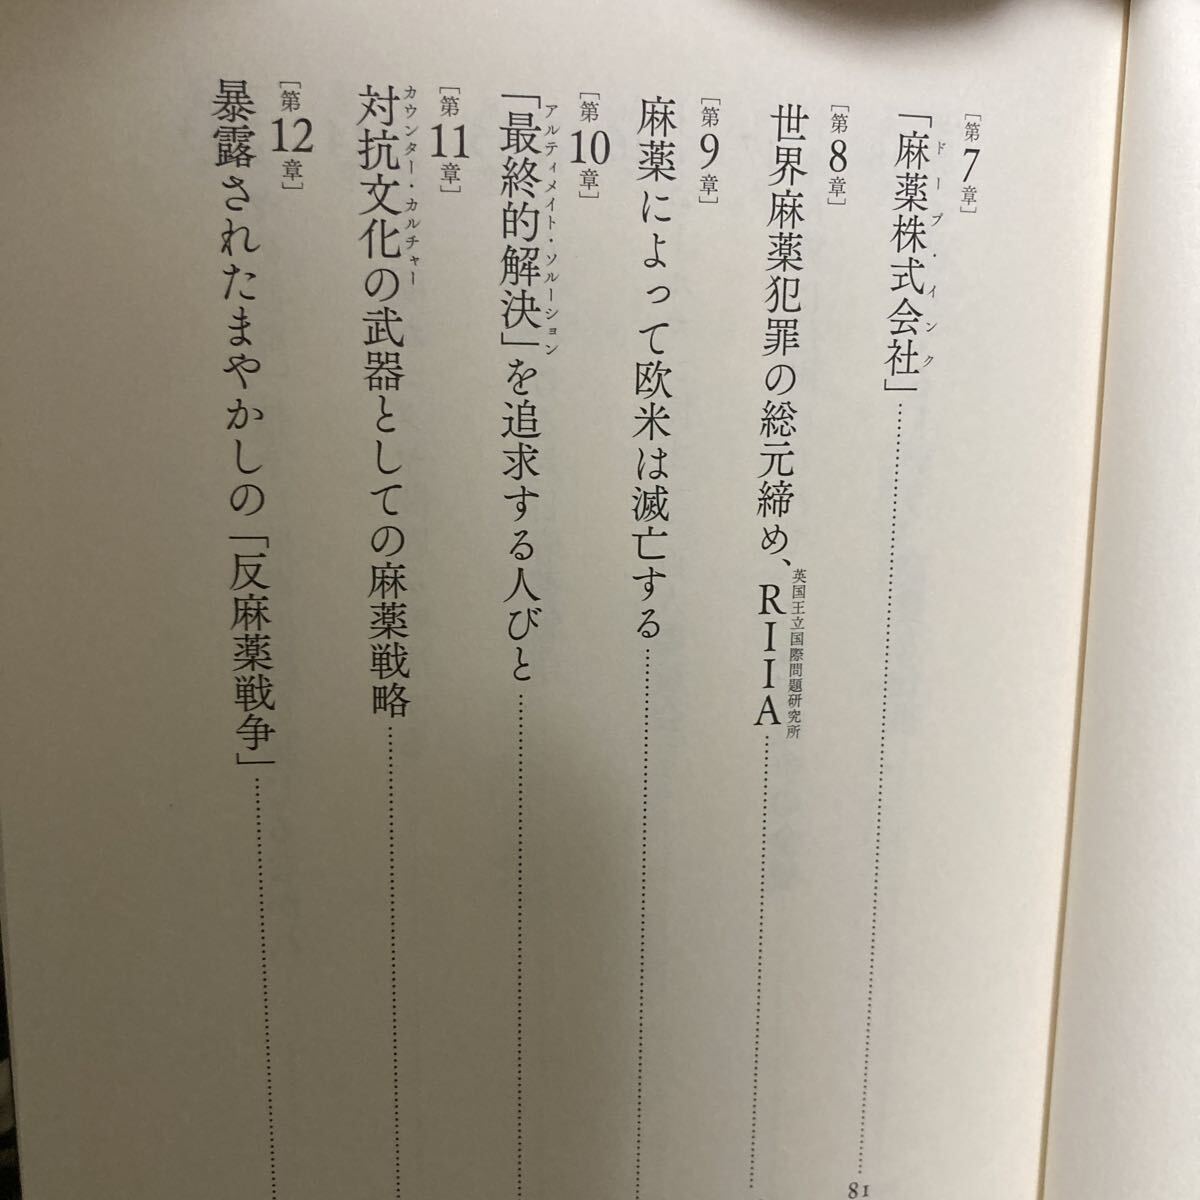 ［第7章］
「麻薬株式会社」
ドープ・インク
81
［第8章］
世界麻薬犯罪の総元締め、RIIA
英国王立国際問題研究所
［第9章］
麻薬によって欧米は滅亡する
［第10章］
「最終的解決」を追求する人びと
アルティメイト・ソルーション
［第11章］
対抗文化の武器としての麻薬戦略
カウンター・カルチャー
［第12章］
暴露されたまやかしの「反麻薬戦争」